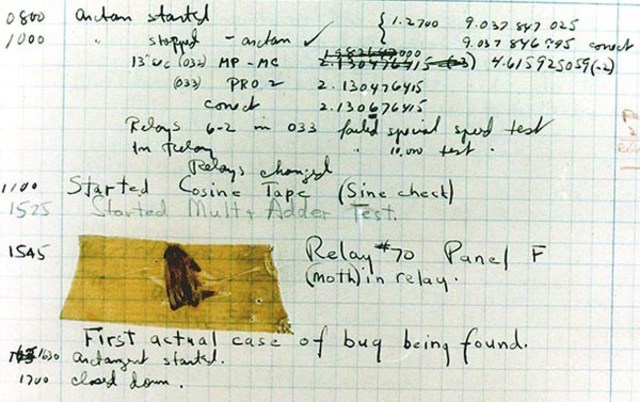 0800 Antan started { 1.2700 9.037 847 025
1000 " stopped - antan ✓ 9.037 846 995 conect
13"uc (032) MP - MC 2.130476415 (-3) 4.615925059(-2)
(033) PRO 2 2.130476415
conect 2.130676415
Relays 6-2 in 033 failed special speed test
In Relay " 10,000 test .
Relays changed
1100 Started Cosine Tape (Sine check)
1525 Started Mult + Adder Test.
1545 Relay #70 Panel F
(moth) in relay.
First actual case of bug being found.
1630 Antangent started.
1700 closed down .